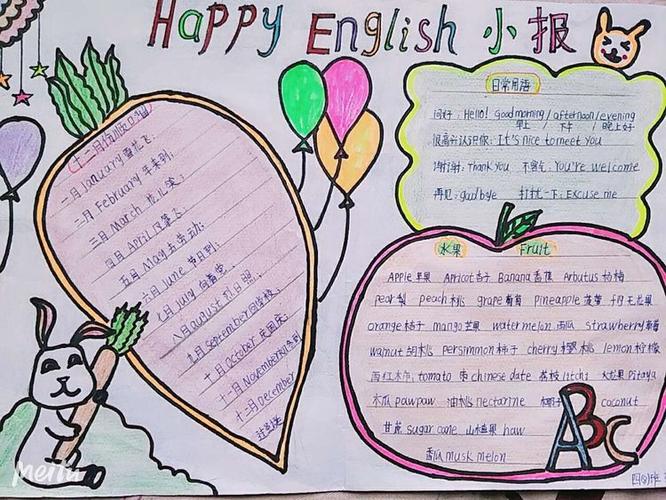 Happy English 小报
十二月份顺口溜
一月January雪花飞;
二月February年来到;
三月March花儿笑;
四月April风筝飞;
五月May去劳动;
六月June节日到;
七月July
八月august烈日照;
九月September回学校;
十月October庆国庆;
十一月November
十二月December
日常用语
问好: Hello! Good morning/afternoon/evening
早上 / 下午 / 晚上好
很高兴认识你: It's nice to meet you
谢谢: Thank you 不客气: You're welcome
再见: goodbye 打扰一下: Excuse me
水果 Fruit
Apple 苹果 Apricot 杏子 Banana 香蕉 Arbutus 杨梅
pear 梨 peach 桃 grape 葡萄 pineapple 菠萝
orange 桔子 mango 芒果 watermelon 西瓜 strawberry 草莓
walnut 胡桃 persimmon 柿子 cherry 樱桃 lemon 柠檬
西红柿 tomato 枣 chinese date 荔枝 litchi 火龙果 Pitaya
木瓜 pawpaw 油桃 nectarine 椰子 coconut
甘蔗 sugar cane 山楂果 haw
香瓜 musk melon
ABC
四(1)班
Meitu